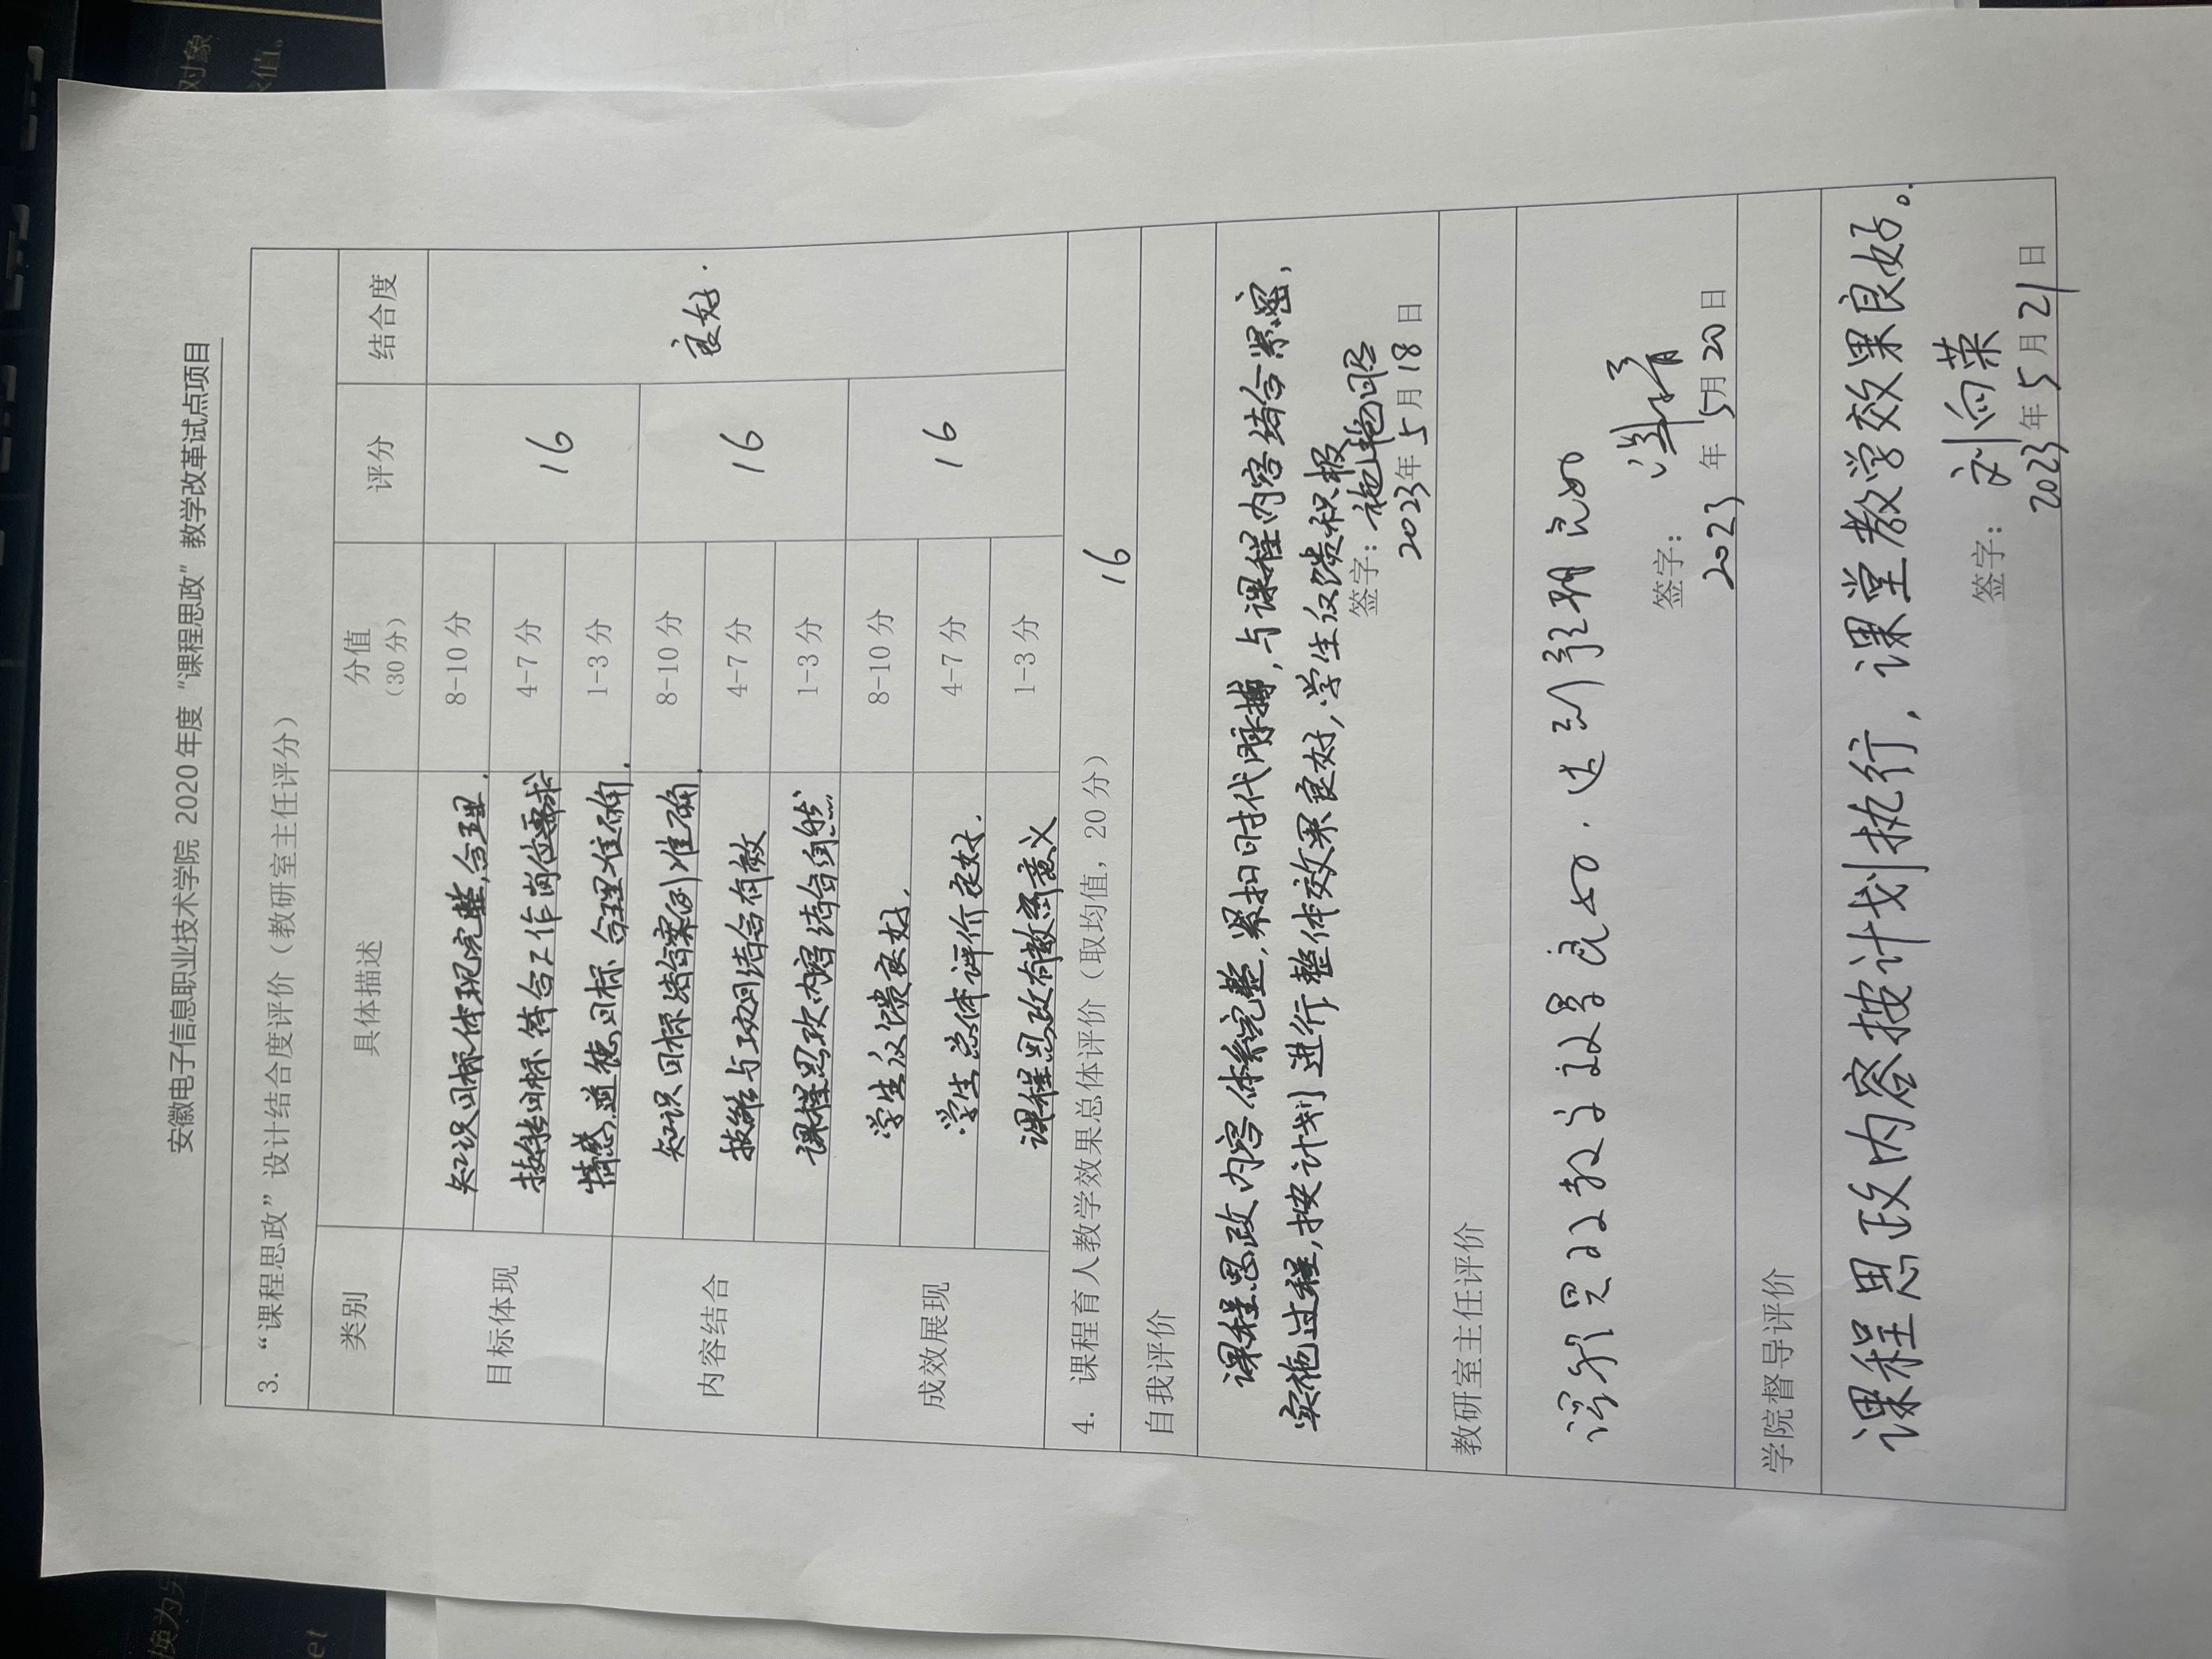 安徽电子信息职业技术学院 2020 年度 “课程思政” 教学改革试点项目
3. “课程思政” 设计结合度评价（教研室主任评分）
类别 具体描述 分值 评分 结合度
（30 分）
目标体现 知识目标体现完整,合理. 8-10 分 16 良好.
技能目标符合工作岗位要求 4-7 分
情感.道德目标 合理准确. 1-3 分
内容结合 知识目标结合案例准确. 8-10 分 16
技能与 结合有效 4-7 分
课程思政内容结合自然 1-3 分
成效展现 学生反馈良好. 8-10 分 16
学生总体评价良好. 4-7 分
课程思政有教育意义 1-3 分
4. 课程育人教学效果总体评价（取均值，20 分） 16
自我评价
课程思政内容体系完整,紧扣时代脉搏,与课程内容结合紧密,
实施过程,按计划进行整体效果良好,学生反馈积极
签字:
2023年 5月 18 日
教研室主任评价
课程思政教学效果良好.达到预期
签字:
2023 年 5月 20 日
学院督导评价
课程思政内容按计划执行，课堂教学效果良好。
签字: 刘向荣
2023年 5月 21日
对象
值.
换为
et